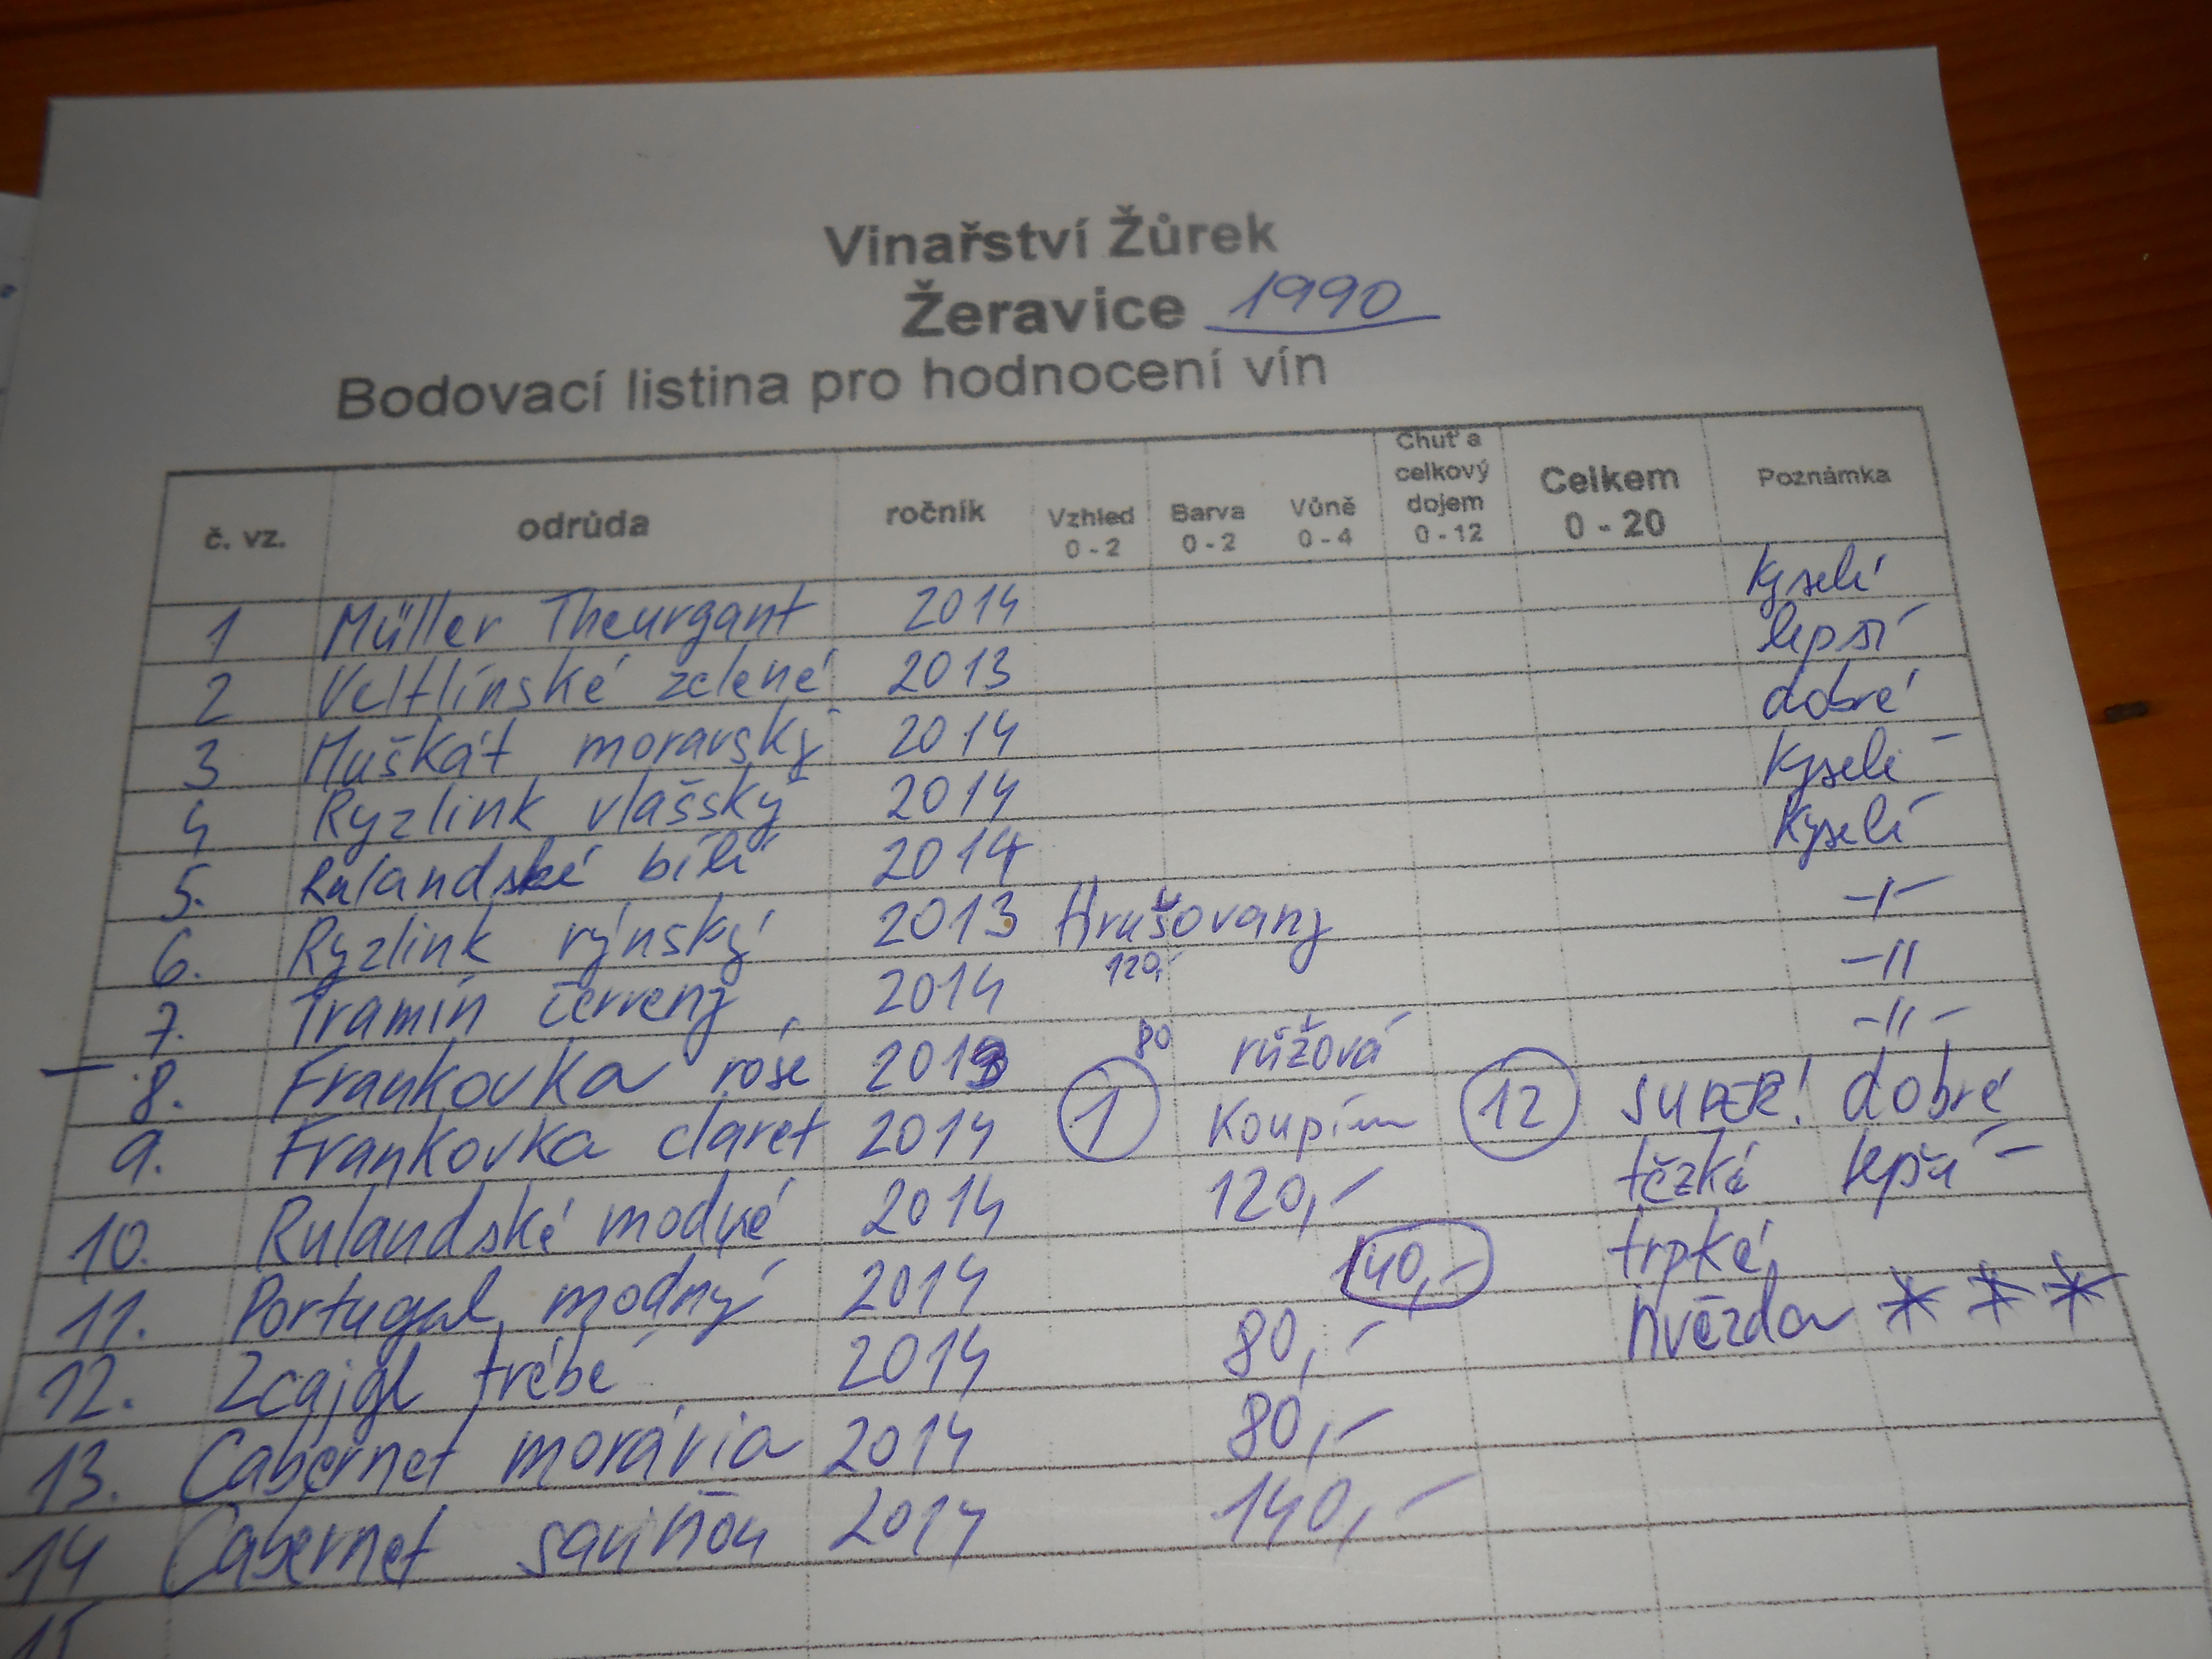 Vinařství Žůrek
Žeravice 1990
Bodovací listina pro hodnocení vín
č. vz. odrůda ročník Vzhled 0 - 2 Barva 0 - 2 Vůně 0 - 4 Chuť a celkový dojem 0 - 12 Celkem 0 - 20 Poznámka
1 Müller Theurgant 2014 kyselí
2 Veltlínské zelené 2013 lepší
3 Muškát moravský 2014 dobré
4 Ryzlink vlašský 2014 kyselé
5. Rulandské bílí 2014 kyselí
6. Ryzlink rýnský 2013 Hrušovany -I-
7. Tramín červený 2014 120,- -II
8. Frankovka róse 2013 80 růžová -II-
9. Frankovka claret 2014 1 Koupím 12 SUPER! dobré
10. Rulandské modré 2014 120,- těžké lepší
11. Portugal modrý 2014 140,- trpké
12. Zcajgl trébé 2014 80,- hvězda * * *
13. Cabernet morávia 2014 80,-
14 Cabernet saviňon 2014 140,-
15